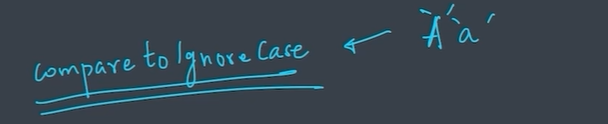 compare to Ignore Case ← 'A' 'a'